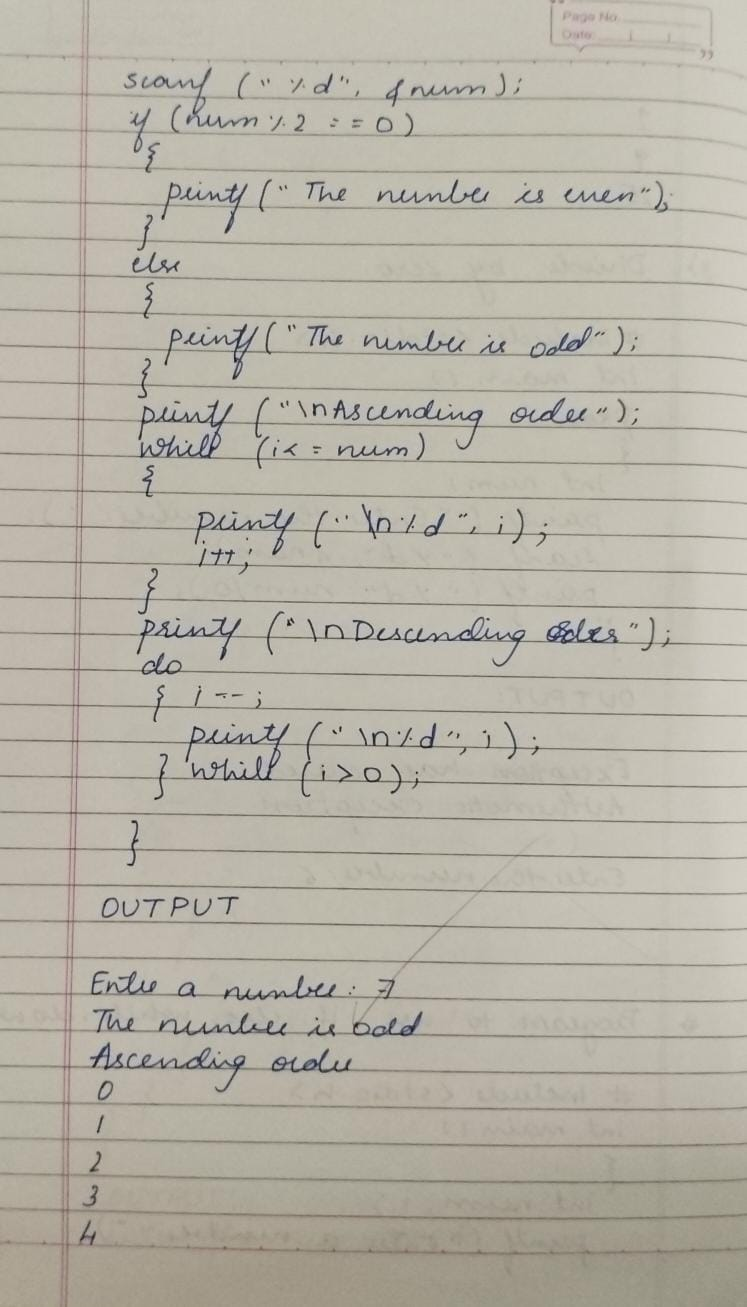 Page No.
Date:
scanf ("%d", &num);
if (num%2 ==0)
{
printf ("The number is even");
}
else
{
printf ("The number is odd");
}
printf ("\nAscending order");
while (i<=num)
{
printf ("\n%d", i);
i++;
}
printf ("\nDescending order");
do
{ i--;
printf ("\n%d", i);
} while (i>0);
}
OUTPUT
Enter a number: 7
The number is odd
Ascending order
0
1
2
3
4